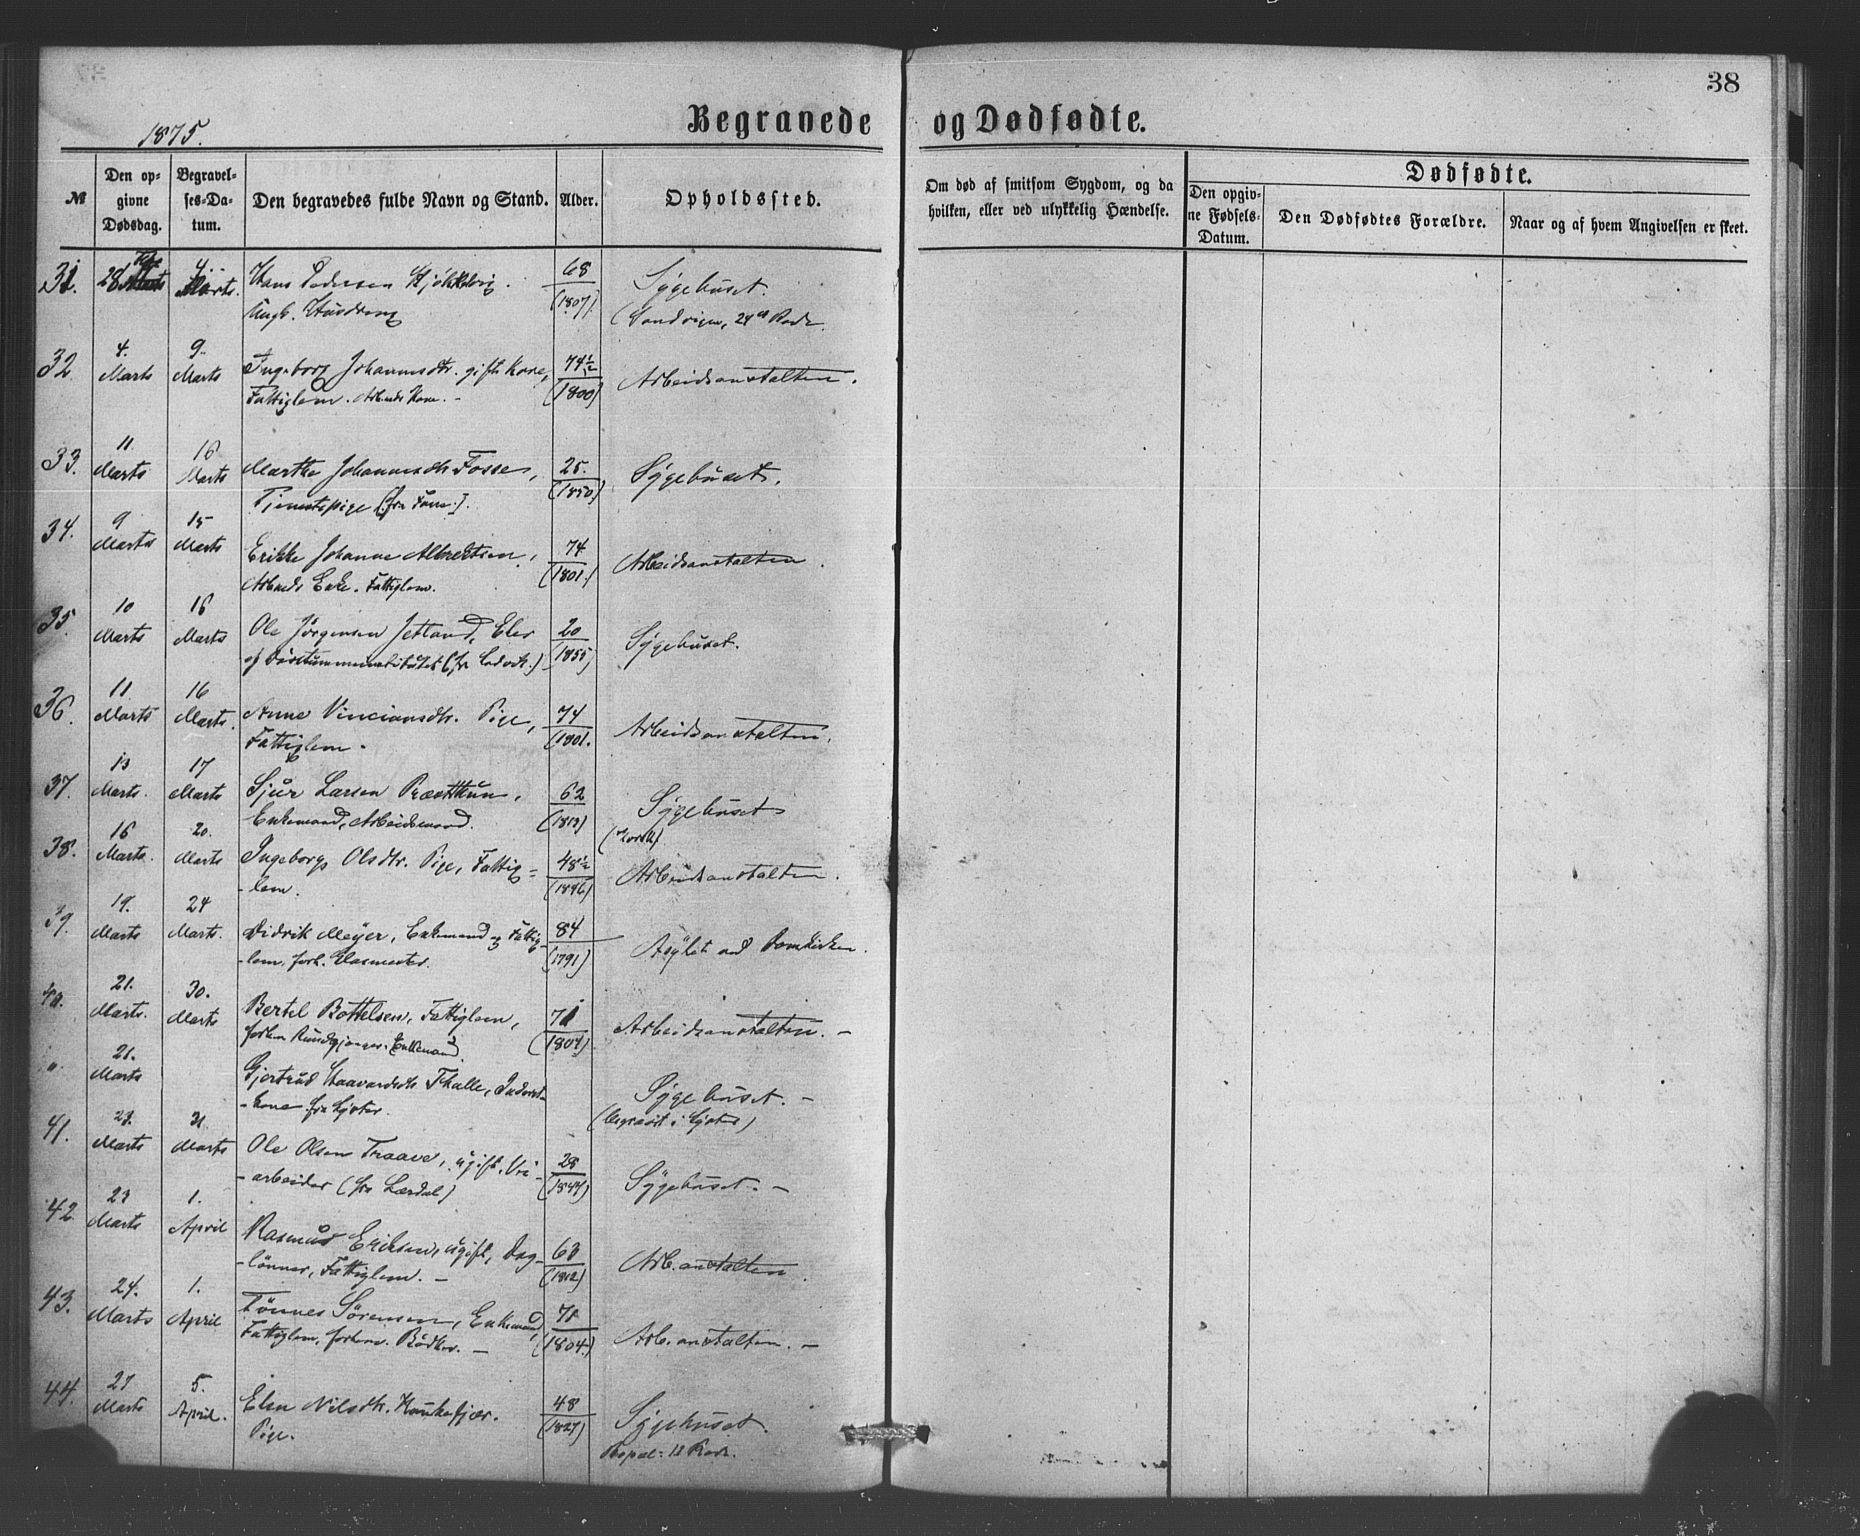 38
Begravede og Dødfødte.
1875.
№
Den opgivne Dødsdag.
Begravelses-Datum.
Den begravedes fulde Navn og Stand.
Alder.
Opholdssted.
Om død af smitsom Sygdom, og da hvilken, eller ved ulykkelig Hændelse.
Dødfødte.
Den opgivne Fødsels-Datum.
Den Dødfødtes Forældre.
Naar og af hvem Angivelsen er skeet.
31. 28 Febr 4. Marts. Hans Pedersen 68 Sygehuset.
Ungk. (1807) (Sandvigen, 24de Rode.
32 4. Marts 9. Marts Ingeborg Johannesdtr. gift Kone, 74½ Arbeidsanstalten.
Fattiglem. Arbeids Kone. - (1800)
33. 11 Marts 16 Marts Marthe Johannesdtr Fosse, 25. Sygehuset.
Tjenestepige (fra Fane.). (1850)
34. 9 Marts 15 Marts Erikke Johanne Albrektsen, 74 Arbeidsanstalten.
Arbeids Enke. Fattiglem. (1801.)
35. 10 Marts 16 Marts Ole Jørgensen Jetland, Elev 20 Sygehuset.
af Døvstummeinstitutet (1855)
36. 11 Marts 16 Marts. Anne Vinciansdtr. Pige, 74 Arbeidsanstalten.
Fattiglem. (1801.
37. 13 Marts. 17 Marts Sjur Larsen Præsthun, 62 Sygehuset
Enkemand, Arbeidsmand. (1813)
38. 16 Marts. 20. Marts Ingeborg Olsdtr. Pige, Fattig= 48½ Arbeidsanstalten.
-lem.
39. 19. Marts 24 Marts. Didrik Meyer, Enkemand og Fattig- 84 Asylet ved Domkirken.
-lem, forh. Glasmester. (1791)
40. 21. Marts. 30. Marts Bertel Bottelsen, Fattiglem, 71 Arbeidsanstalten. -
forhen Rundgjænger. Enkemand. (1804)
" 21. Marts Gjertrud Haavardsdtr Thalle, Inderst- Sygehuset. -
-kone fra (begravet i
41. 23. Marts 31. Marts Ole Olsen Traave, ugift. 28 Sygehuset. -
-arbeider (fra Lærdal) (1847)
42. 23 Marts 1. April Rasmus Eriksen, ugift, Dag- 63 Arb. anstalten.
-lönner, Fattiglem. - (1812)
43. 24. Marts 1. April Tönnes Sörensen, Enkemand, 71 Arb. anstalten. -
Fattiglem, forhen. Bödker. - (1804.)
44. 27 Marts 5. April. Elen Nilsdtr. Haukefjær. 48 Sygehuset.
Pige. (1827) 12 Rode.